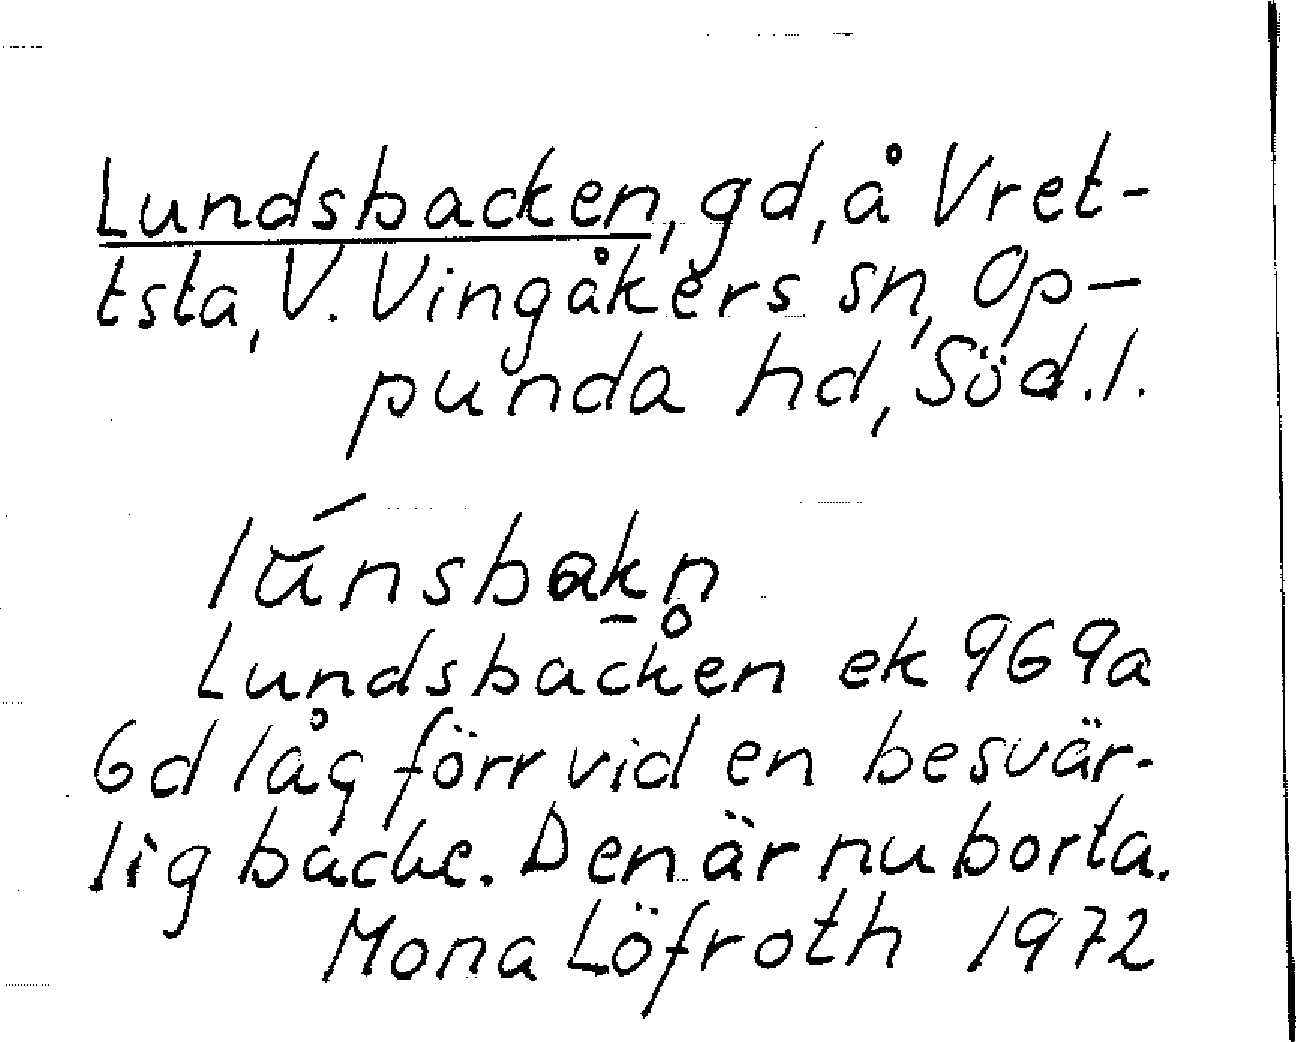 Lundsbacken, gd, å Vret-
tsta, V. Vingåkers sn, Op-
punda hd, Söd.l.
lu̅́nsbak̠n̥
Lundsbacken ek 969a
Gd låg förr vid en besvär-
lig backe. Den är nu borta.
Mona Löfroth 1972